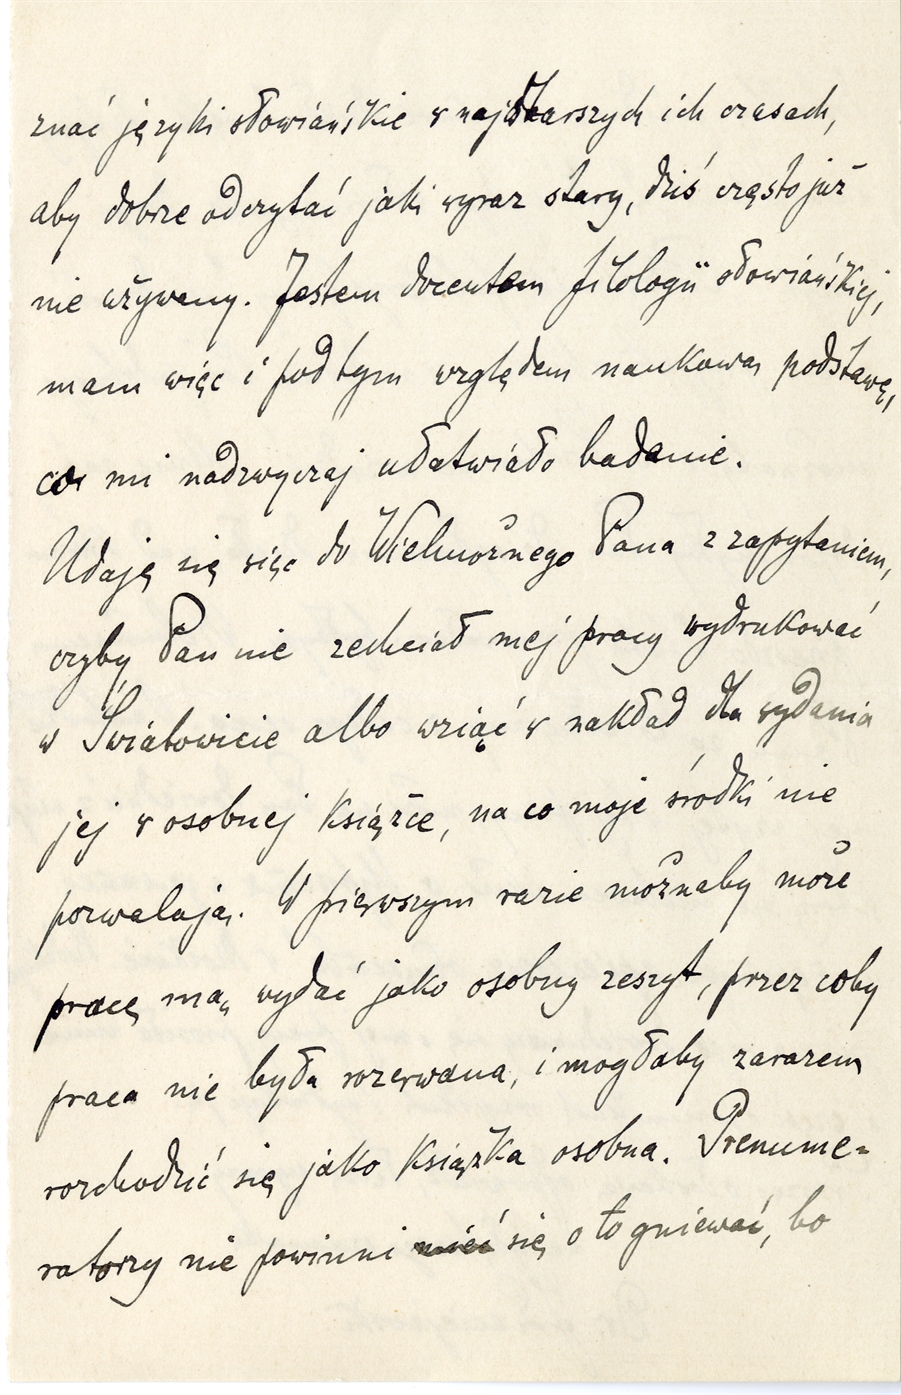 znać języki słowiańskie w najstarszych ich czasach,
aby dobrze odczytać jaki wyraz stary, dziś często już
nie używany. Jestem docentem filologii słowiańskiej,
mam więc i pod tym względem naukową podstawę,
co mi nadzwyczaj ułatwiało badanie.
Udaję się więc do Wielmożnego Pana z zapytaniem,
czyby Pan nie zechciał mej pracy wydrukować
w Światowicie albo wziąć w nakład dla wydania
jej w osobnej książce, na co moje środki nie
pozwalają. W pierwszym razie możnaby może
pracę mą wydać jako osobny zeszyt, przez coby
praca nie była rozerwana, i mogłaby zarazem
rozchodzić się jako książka osobna. Prenume=
ratorzy nie powinni mieć się o to gniewać, bo